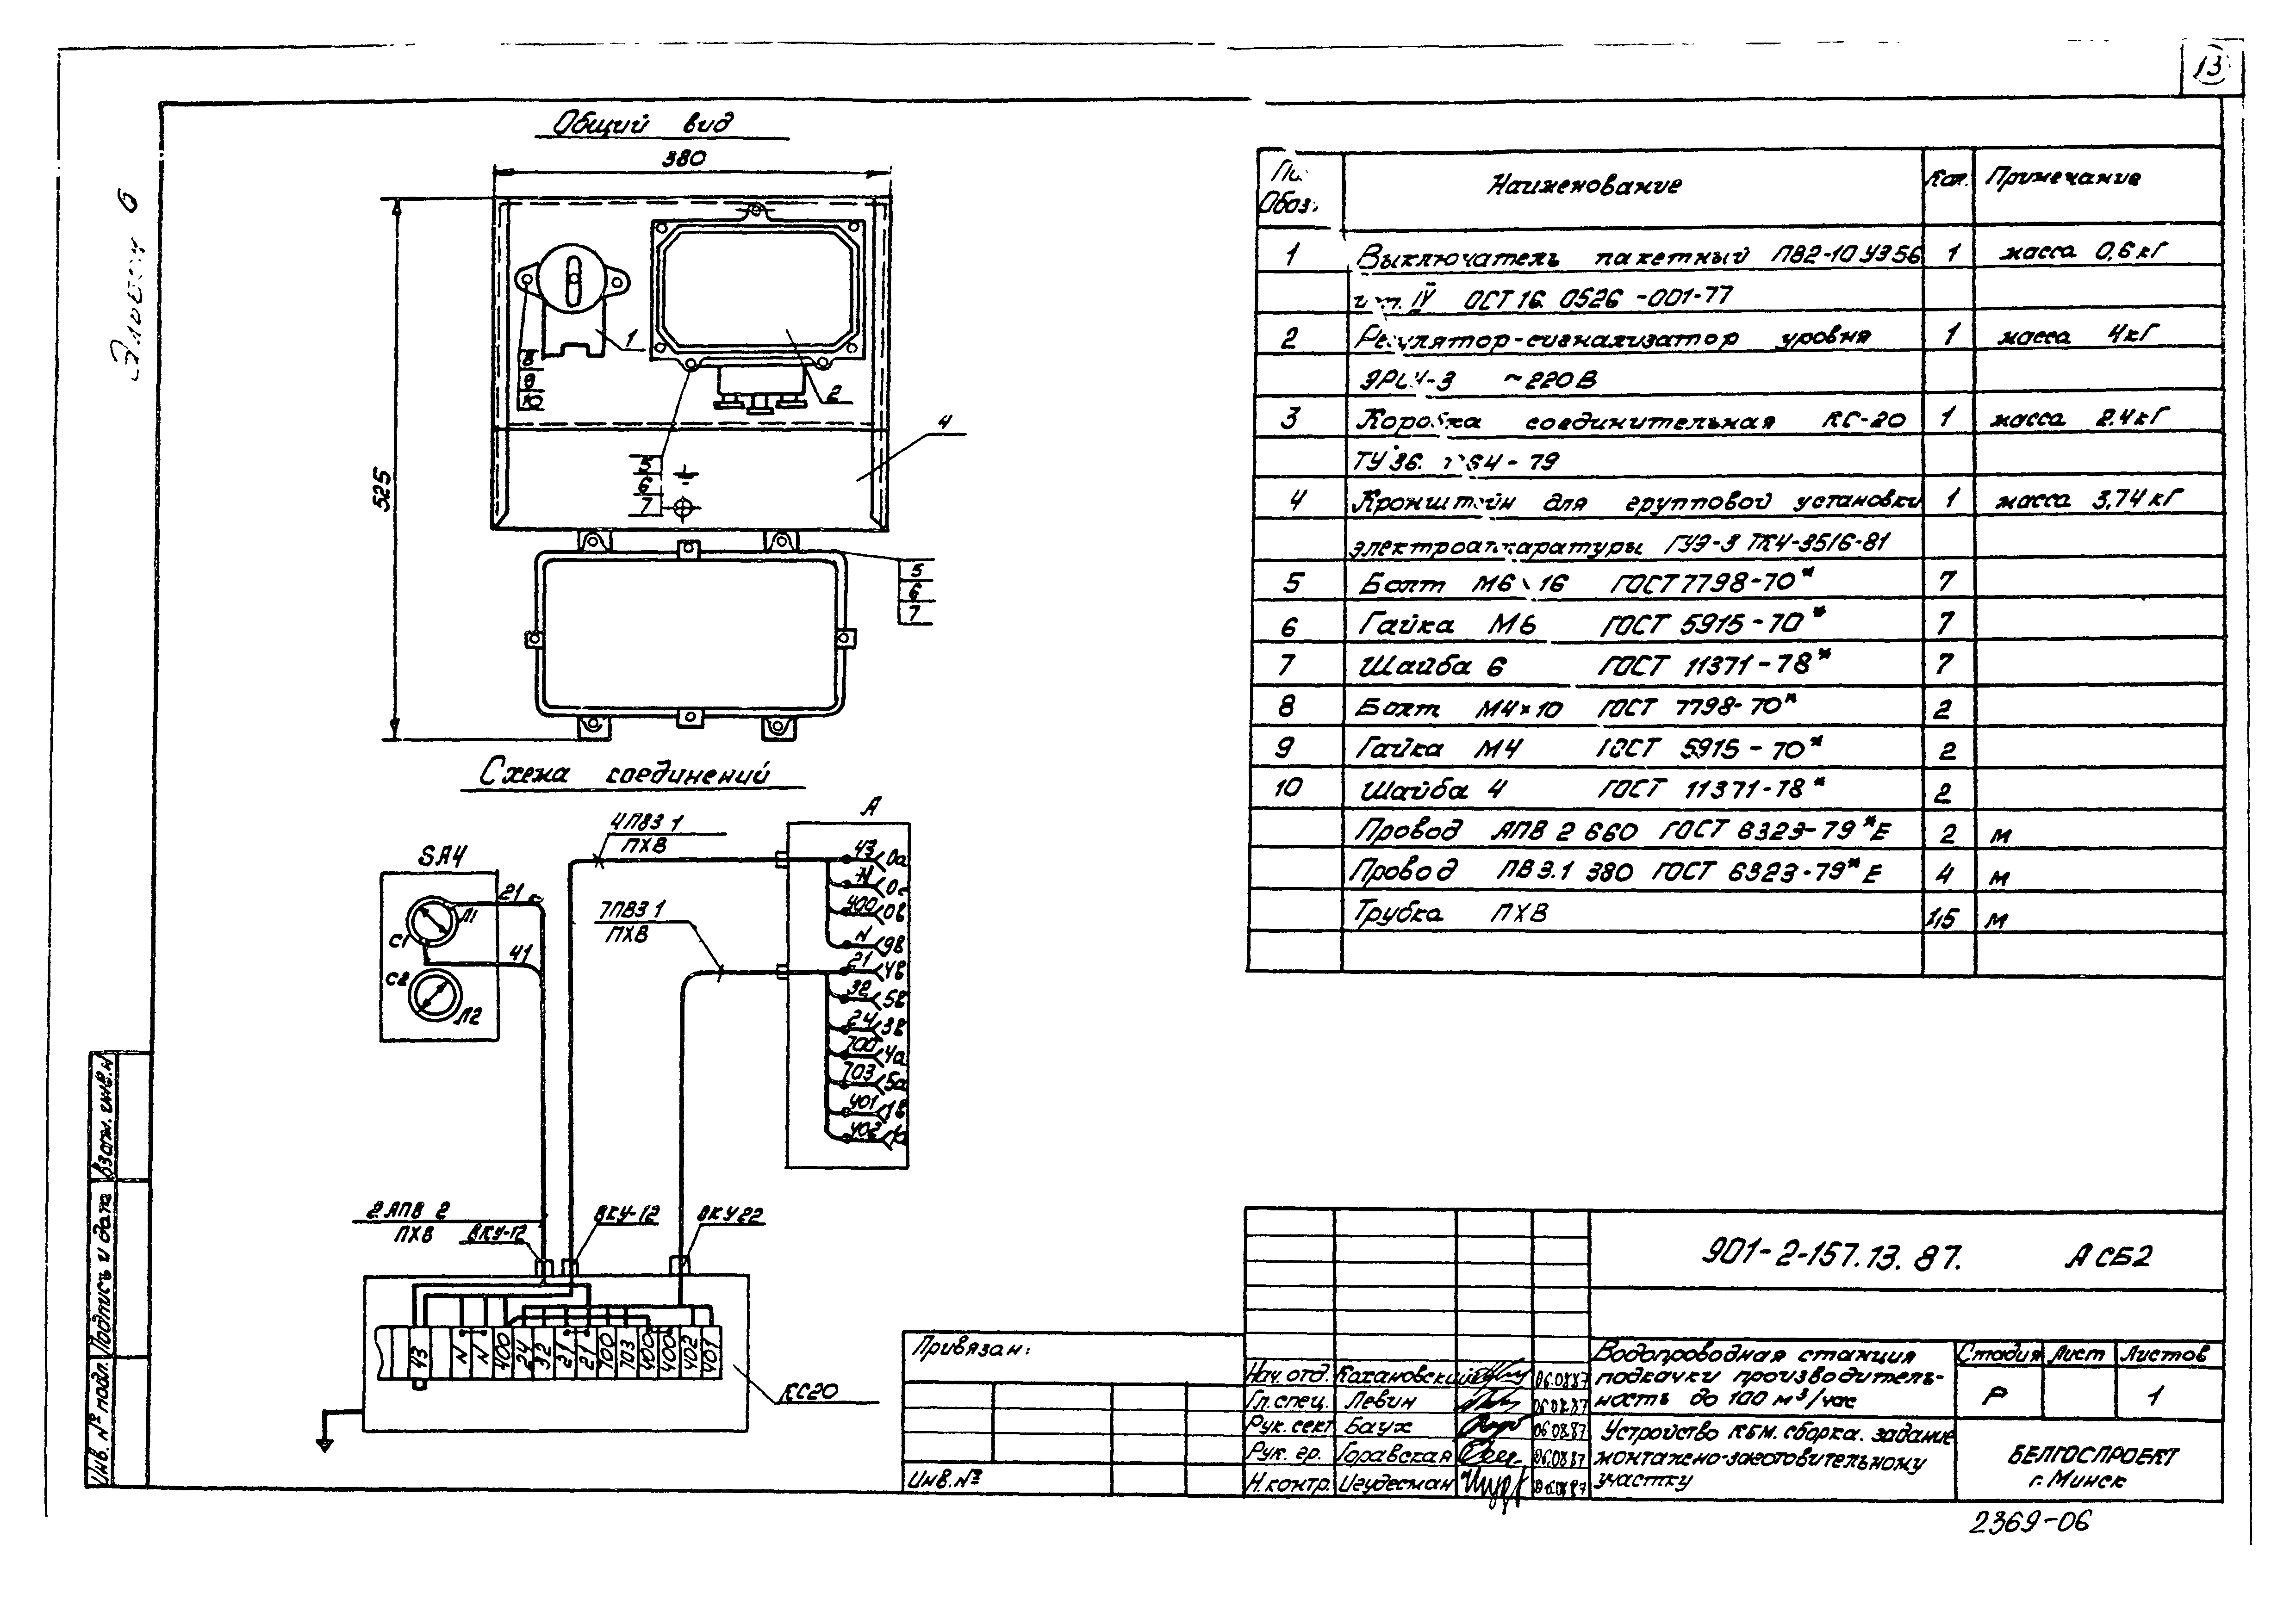 13
Альбом 6
Общий вид
380
525
1
2
4
8
9
10
5
6
7
5
6
7
Обоз. Наименование Кол. Примечание
1 Выключатель пакетный ПВ2-10 У3 56 1 масса 0,6 кГ
IV ОСТ 16. 0526-001-77
2 Регулятор-сигнализатор уровня 1 масса 4 кГ
ЭРСУ-3 ~220 В
3 Коробка соединительная КС-20 1 масса 2.4 кГ
ТУ 36. - 79
4 Кронштейн для групповой установки 1 масса 3,74 кГ
электроаппаратуры ГУЭ-3 ТК4-3516-81
5 Болт М6 16 ГОСТ 7798-70* 7
6 Гайка М6 ГОСТ 5915-70* 7
7 Шайба 6 ГОСТ 11371-78* 7
8 Болт М4×10 ГОСТ 7798-70* 2
9 Гайка М4 ГОСТ 5915-70* 2
10 Шайба 4 ГОСТ 11371-78* 2
Провод АПВ 2 660 ГОСТ 6323-79*Е 2 м
Провод ПВ3.1 380 ГОСТ 6323-79*Е 4 м
Трубка ПХВ 1,5 м
Схема соединений
SA4
21
Л1
С1
41
С2
Л2
4ПВ3 1
ПХВ
7ПВ3 1
ПХВ
А
43 0а
N 0с
400 0в
N 9в
21 4в
32 5в
24 3в
700 4а
703 5а
401 1в
402
2 АПВ 2
ПХВ
ВКУ-12
ВКУ-12
ВКУ22
43 N N 400 24 32 21 21 700 703 400 400 402 401
КС20
Взам. инв. N
Подпись и дата
Инв. № подл.
Привязан:
Инв. №
901-2-157.13.87. АСБ2
Нач. отд. Кохановский 06.08.87
Гл. спец. Левин 06.08.87
Рук. сект Баух 06.08.87
Рук. гр. Горавская 06.08.87
Н. контр. Игудесман 06.08.87
Водопроводная станция
подкачки производитель-
ность до 100 м³/час
Стадия Лист Листов
Р 1
Устройство КБМ. сборка. задание
монтажно-заготовительному
участку
БЕЛГОСПРОЕКТ
г. Минск
2369-06